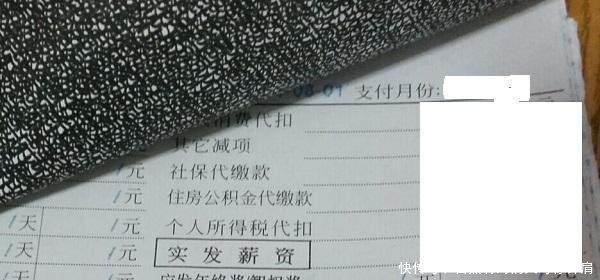 08-01 支付月份:
消费代扣
其它减项
/元 社保代缴款
/元 住房公积金代缴款
/天 /元 个人所得税代扣
/天 /元 实发薪资
/天 /元